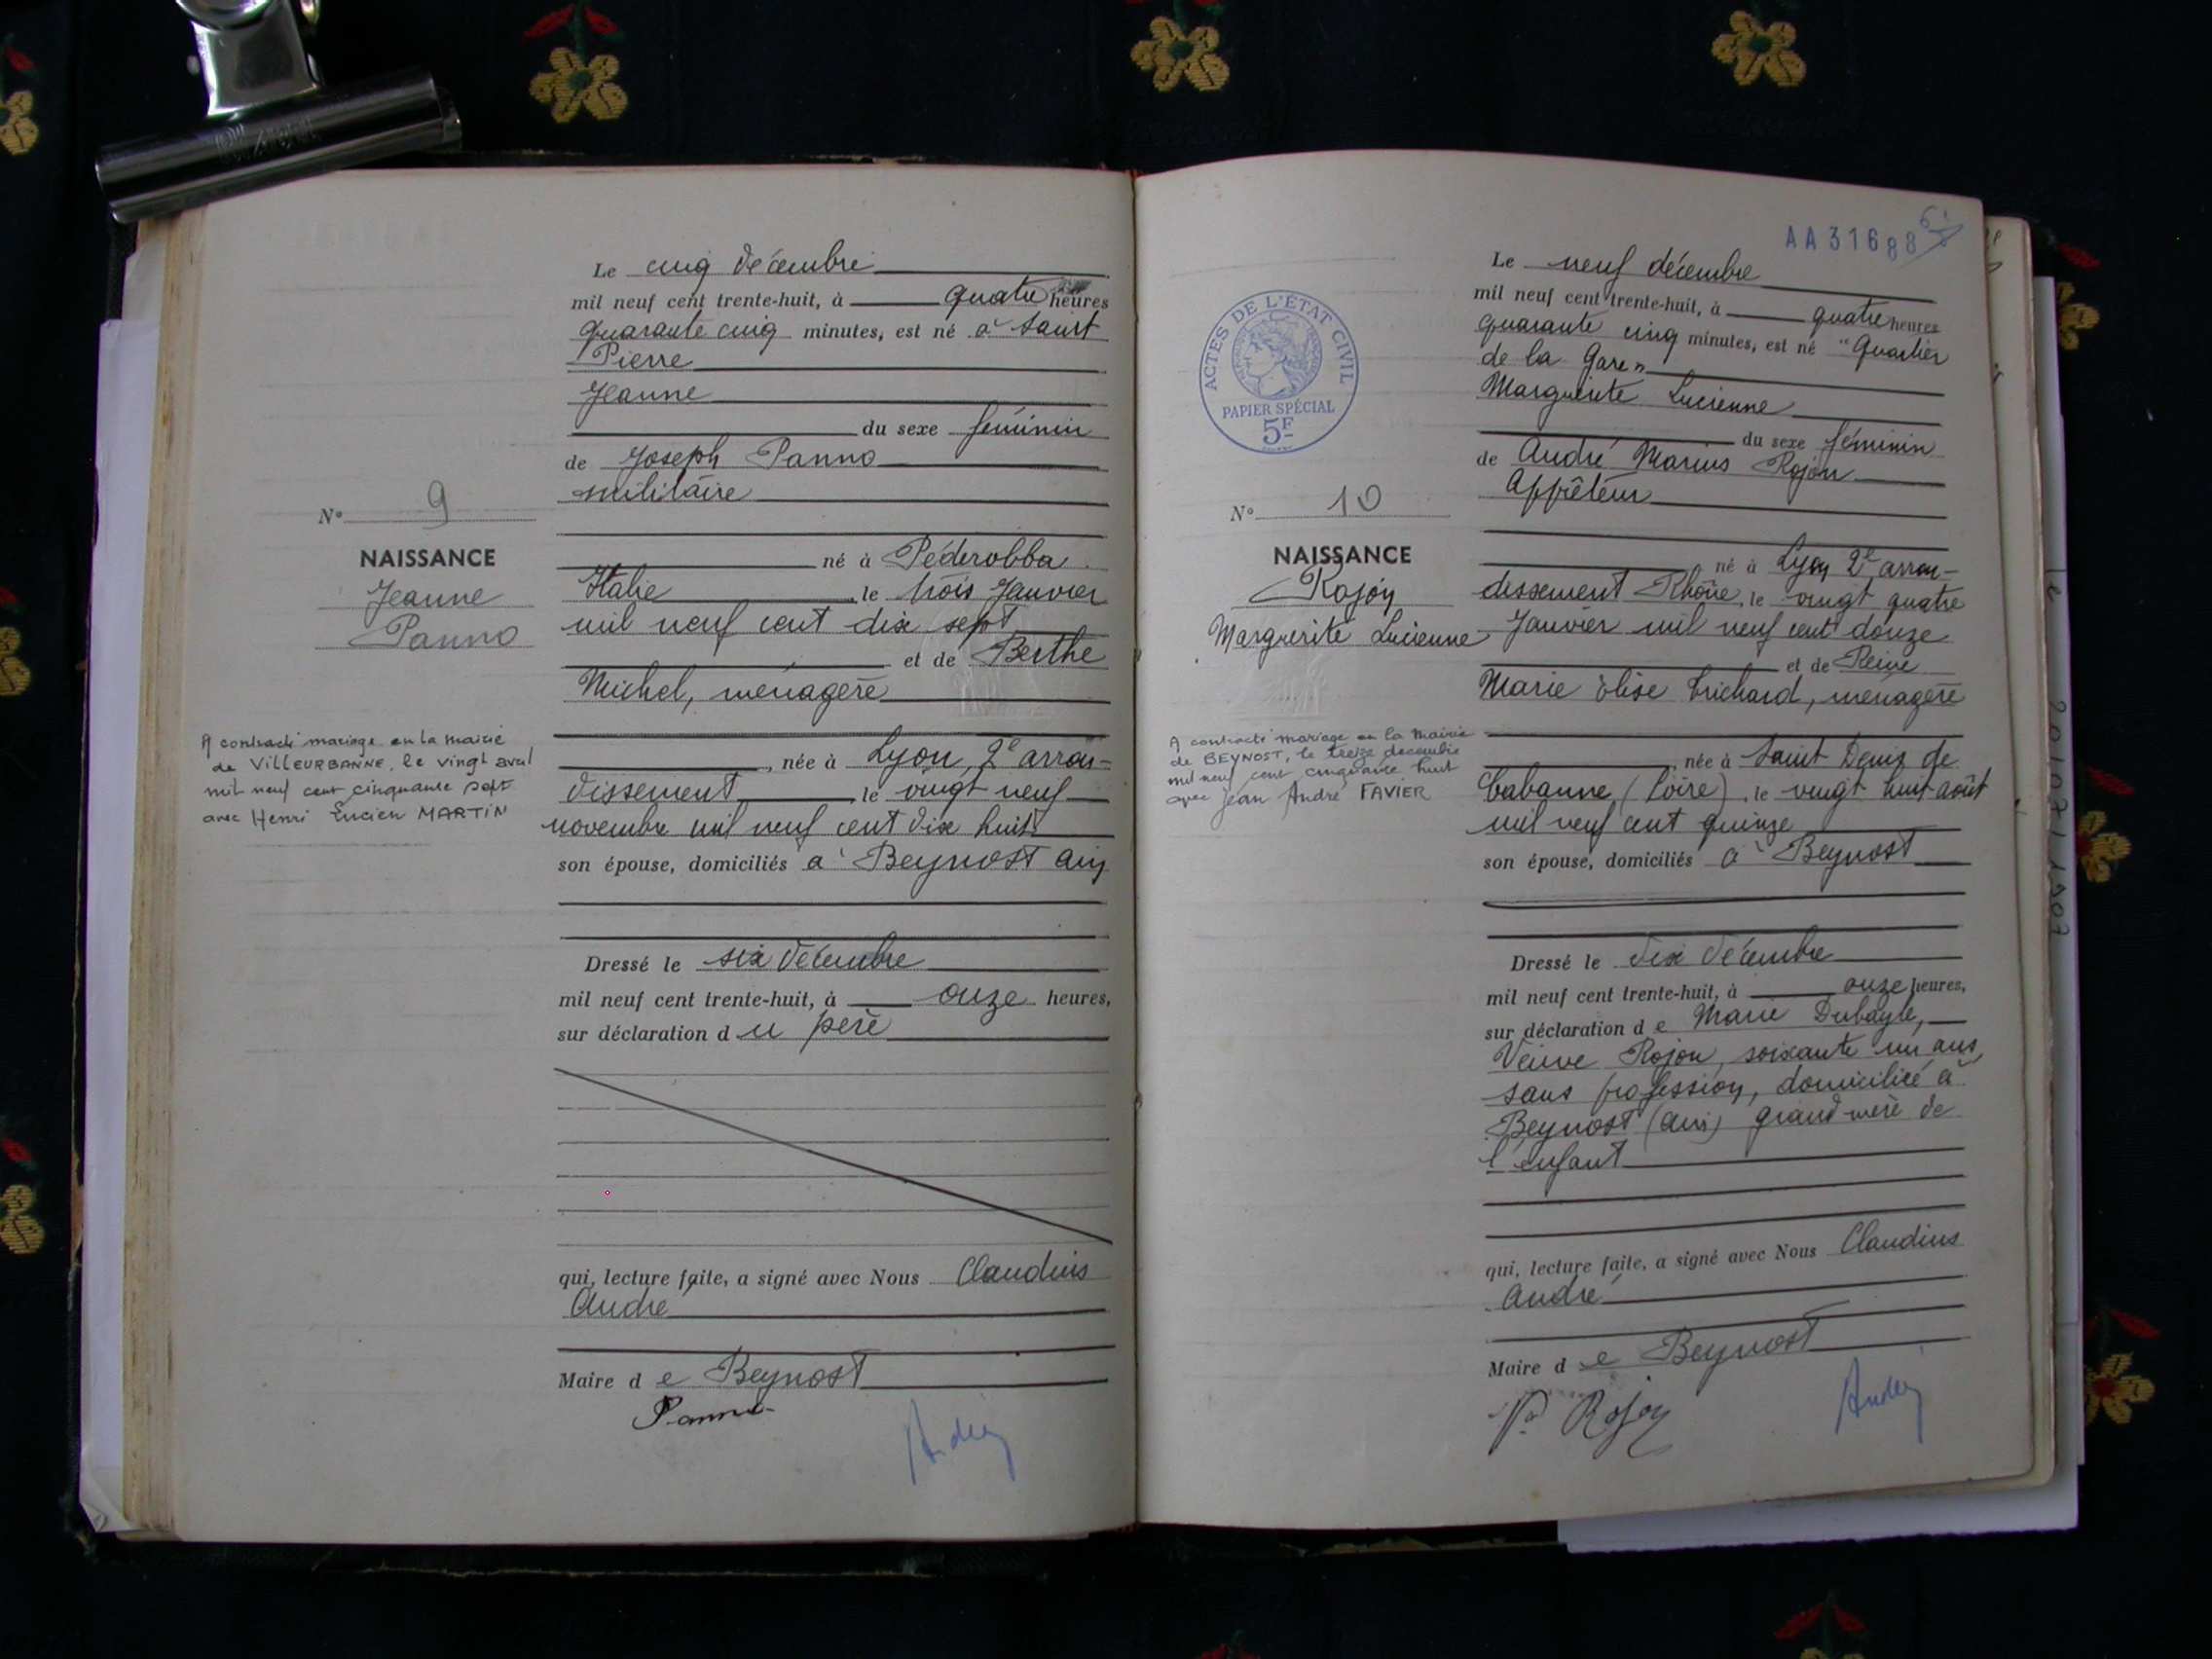 Le cinq décembre
mil neuf cent trente-huit, à quatre heures
quarante cinq minutes, est né à Saint
Pierre
Jeanne
du sexe féminin
de Joseph Panno
militaire
N° 9
NAISSANCE
Jeanne
Panno
né à Péderobba
Italie, le trois Janvier
mil neuf cent dix sept
et de Berthe
Michel, ménagère
A contracté mariage en la mairie
de VILLEURBANNE, le vingt avril
mil neuf cent cinquante sept
avec Henri Lucien MARTIN
, née à Lyon, 2e arron-
dissement, le vingt neuf
novembre mil neuf cent dix huit
son épouse, domiciliés à Beynost Ain
Dressé le six décembre
mil neuf cent trente-huit, à onze heures,
sur déclaration du père
qui, lecture faite, a signé avec Nous Claudius
André
Maire de Beynost
Panno
André
AA31688
Le neuf décembre
mil neuf cent trente-huit, à quatre heures
quarante cinq minutes, est né "Quartier
de la Gare"
Marguerite Lucienne
du sexe féminin
de André Marius Rojon
Apprêteur
ACTES DE L'ÉTAT CIVIL
PAPIER SPÉCIAL
5F
N° 10
NAISSANCE
Rojon
Marguerite Lucienne
né à Lyon 2e arron-
dissement Rhône, le vingt quatre
Janvier mil neuf cent douze
et de Reine
Marie Elise Trichard, ménagère
A contracté mariage en la Mairie
de BEYNOST, le treize decembre
mil neuf cent cinquante huit
avec Jean André FAVIER
, née à Saint Denis de
Cabanne (Loire), le vingt huit août
mil neuf cent quinze
son épouse, domiciliés à Beynost
Dressé le dix décembre
mil neuf cent trente-huit, à onze heures,
sur déclaration de Marie Dubayle,
Veuve Rojon, soixante un ans,
sans profession, domiciliée à
Beynost (Ain) grand'mère de
l'enfant
qui, lecture faite, a signé avec Nous Claudius
André
Maire de Beynost
Rojon
André